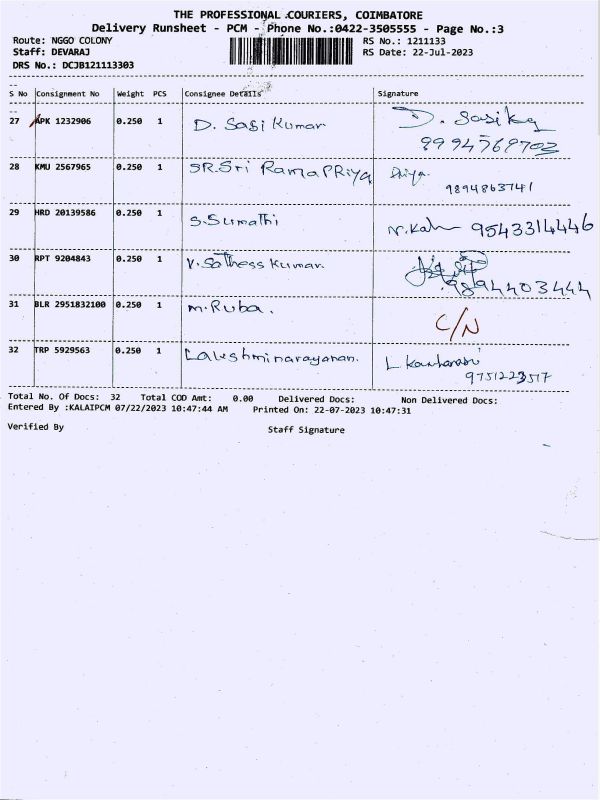 THE PROFESSIONAL COURIERS, COIMBATORE
Delivery Runsheet - PCM - Phone No.:0422-3505555 - Page No.:3
Route: NGGO COLONY RS No.: 1211133
Staff: DEVARAJ RS Date: 22-Jul-2023
DRS No.: DCJB121113303
S No Consignment No Weight PCS Consignee Details Signature
27 APK 1232906 0.250 1 D. Sasi Kumar D. Sasi
9994769703
28 KMU 2567965 0.250 1 SR.Sri RamaPRiya
9894863741
29 HRD 20139586 0.250 1 S.Sumathi 9543314446
30 RPT 9204843 0.250 1 V.Sathess Kumar. 9894403444
31 BLR 2951832100 0.250 1 M.Ruba. C/N
32 TRP 5929563 0.250 1 Lakshminarayanan. L
9751223517
Total No. Of Docs: 32 Total COD Amt: 0.00 Delivered Docs: Non Delivered Docs:
Entered By :KALAIPCM 07/22/2023 10:47:44 AM Printed On: 22-07-2023 10:47:31
Verified By Staff Signature